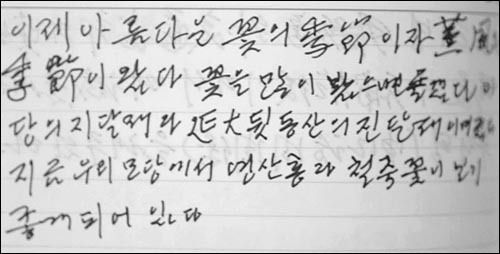 이제 아름다운 꽃의 季節이자 薰風
季節이 왔다 꽃을 많이 봤으면 좋겠다
당의 지달래와 延大 뒷동산의 진달래
지금 우리 모당에서 연산홍과 철쭉꽃이 보기
좋게 되어 있다